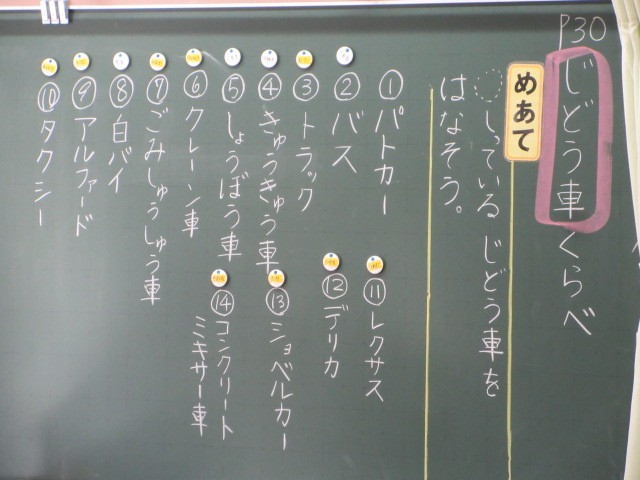 P30
じどう車くらべ
めあて
しっている じどう車を
はなそう。
①パトカー
②バス
③トラック
④きゅうきゅう車
⑤しょうぼう車
⑥クレーン車
⑦ごみしゅうしゅう車
⑧白バイ
⑨アルファード
⑩タクシー
⑪レクサス
⑫デリカ
⑬ショベルカー
⑭コンクリート
ミキサー車